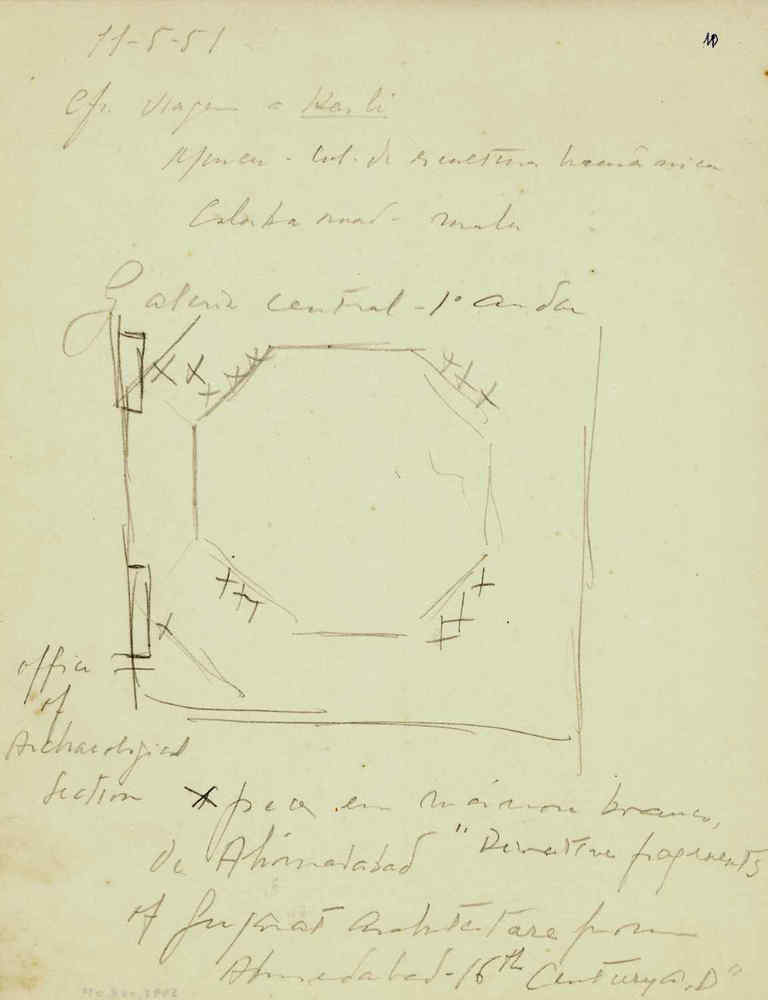 11-5-51
10
Cfr. viagem a Karli
Museu - Col. de escultura bramânica
Colaba road -
Galeria central - 1º andar
office
of
Archaeological
Section
x peça em mármore branco,
de Ahmedabad "Decorative fragments
of Gujarat architecture from
Ahmedabad - 16th Century A.D"